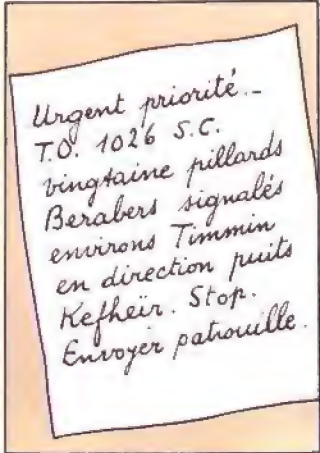 Urgent priorité._
T.O. 1026 S.C.
vingtaine pillards
Berabers signalés
environs Timmin
en direction puits
Kefheir. Stop.
Envoyer patrouille.